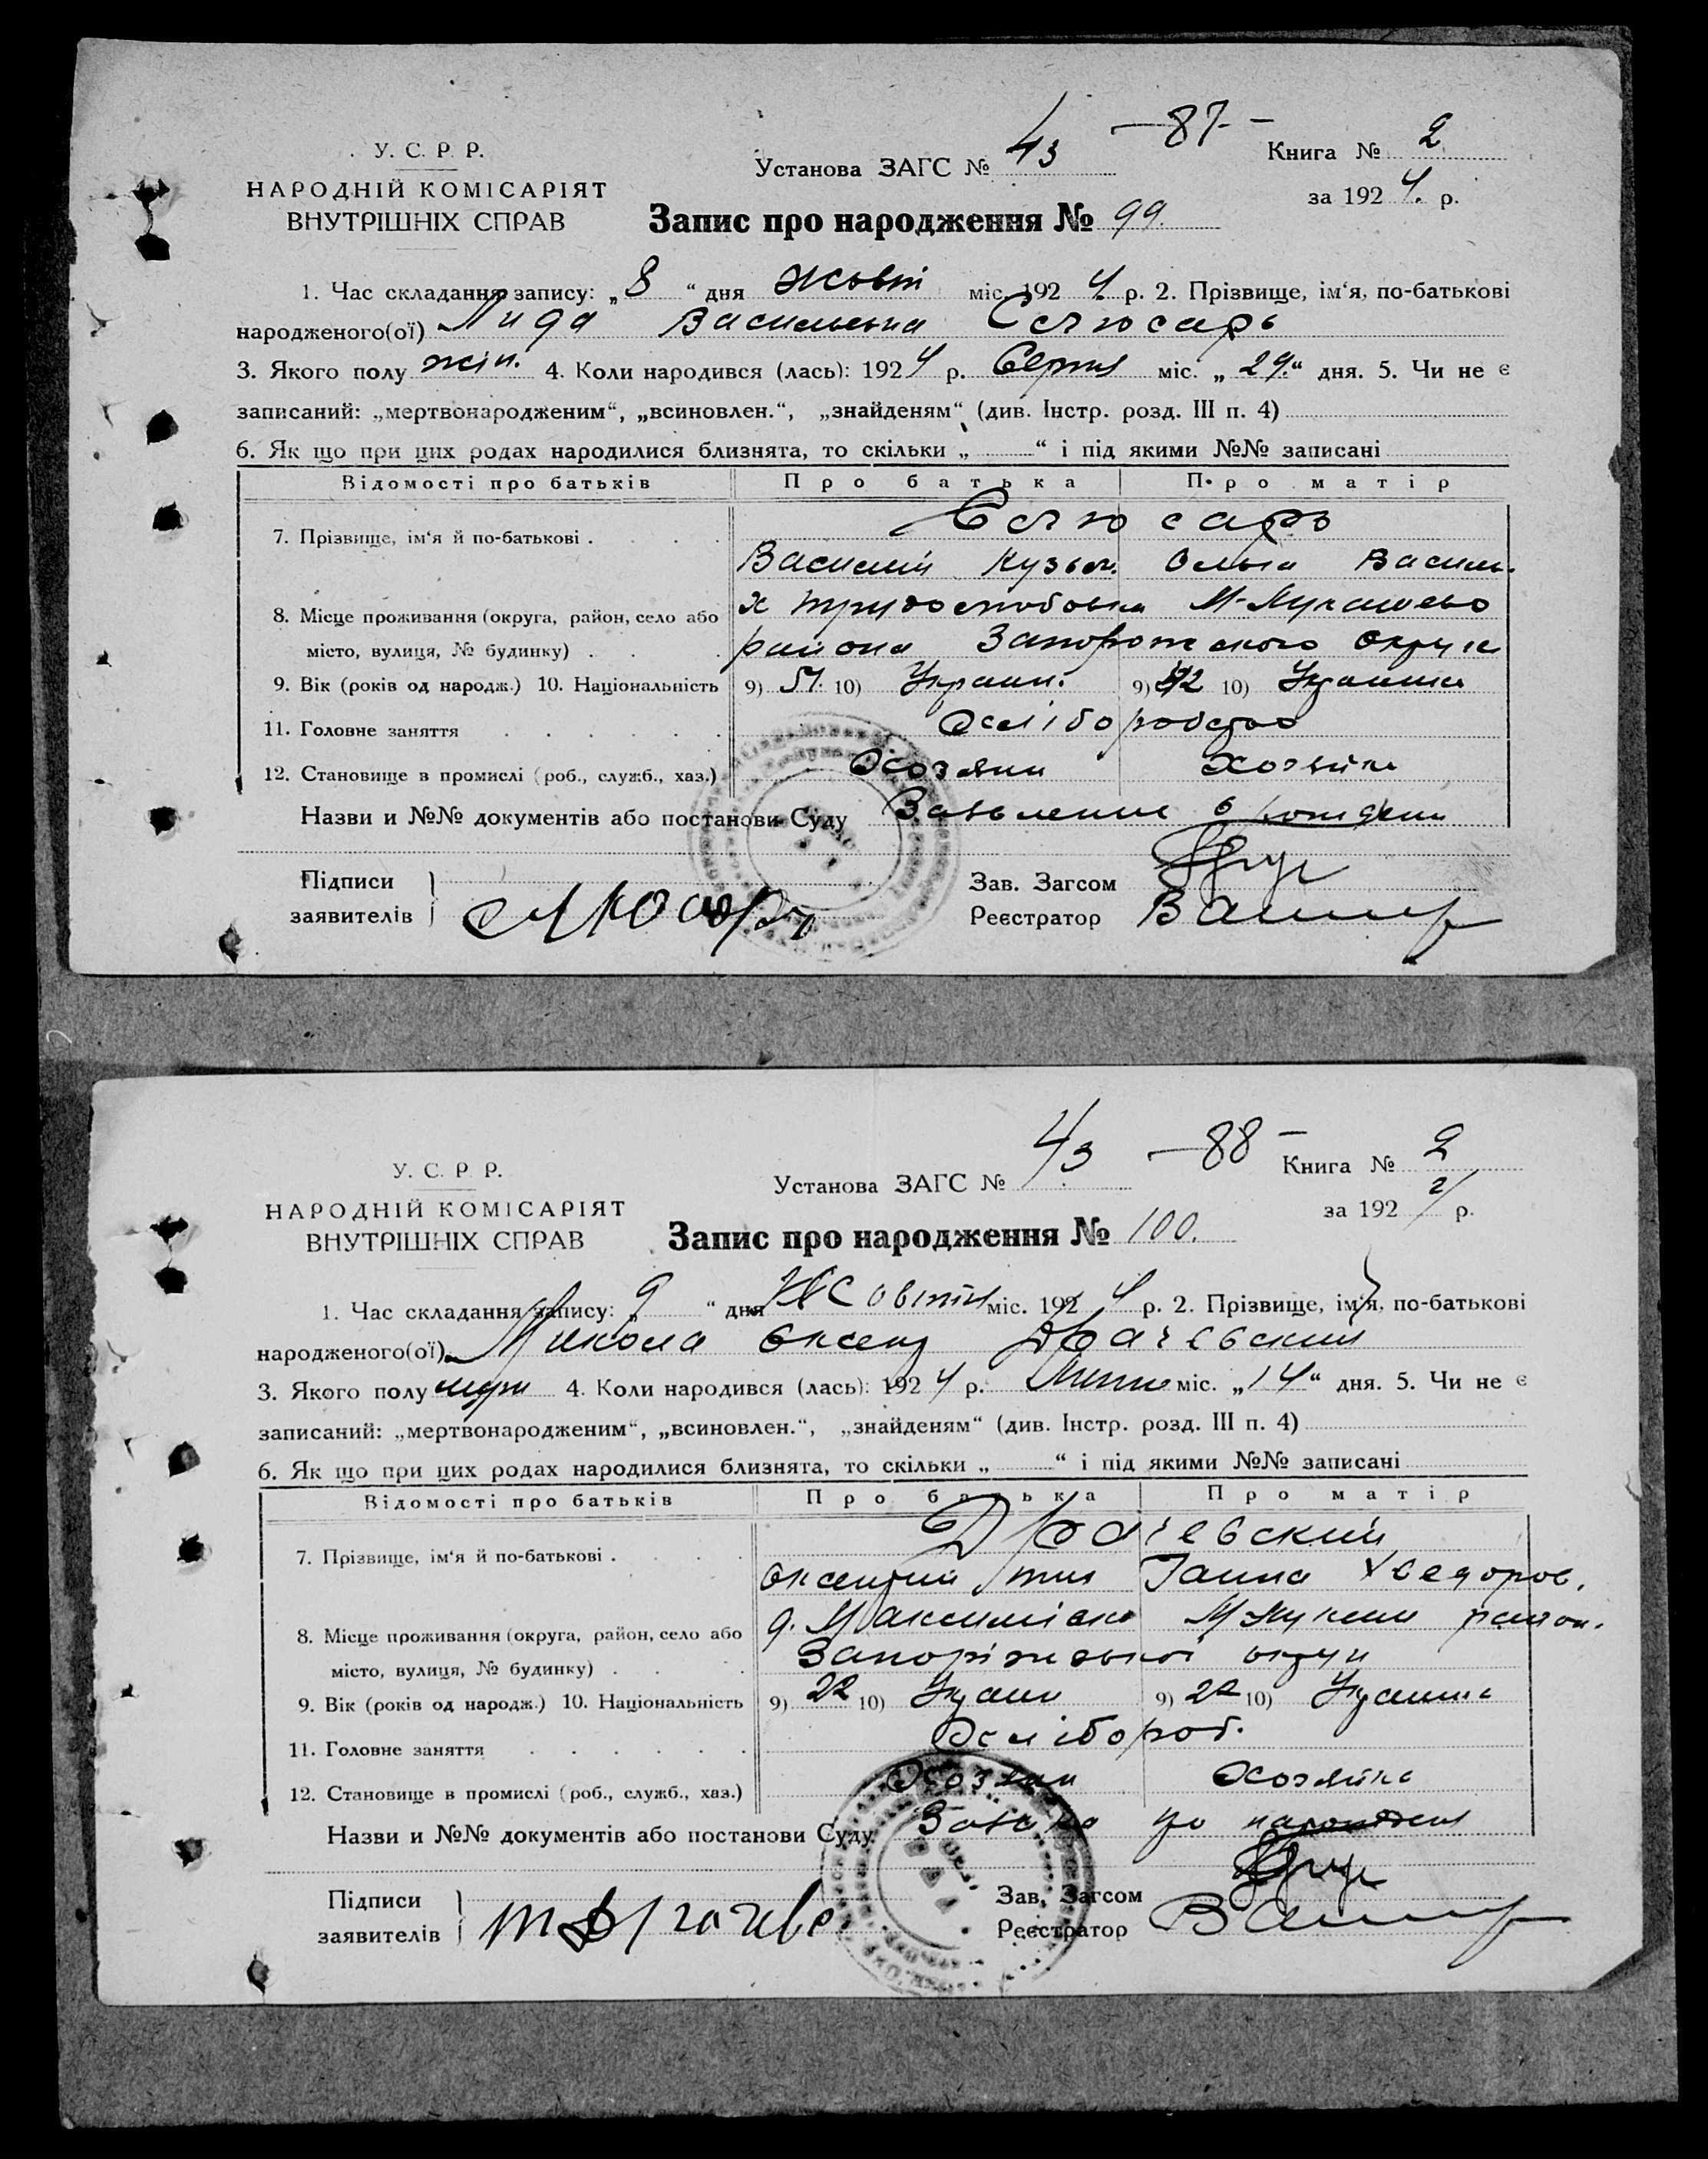 У. С. Р. Р.
НАРОДНІЙ КОМІСАРІЯТ
ВНУТРІШНІХ СПРАВ
Установа ЗАГС № 43
— 87 —
Книга № 2
за 1924. р.
Запис про народження № 99.
1. Час складання запису: „8“ дня жовт міс. 1924 р. 2. Прізвище, ім‘я, по-батькові
народженого(ої) Лида Васильевна Слюсарь
3. Якого полу жін. 4. Коли народився (лась): 1924 р. Серпня міс. „29.“ дня. 5. Чи не є
записаний: „мертвонародженим“, „всиновлен.“, „знайденям“ (див. Інстр. розд. III п. 4)
6. Як що при цих родах народилися близнята, то скільки „ “ і під якими №№ записані
Відомості про батьків Про батька Про матір
7. Прізвище, ім‘я й по-батькові . Слюсарь
Василий Кузьм. Ольга Василь.
8. Місце проживання (округа, район, село або х М-Лукашево
місто, вулиця, № будинку) района Запорожского округа
9. Вік (років од народж.) 10. Національність 9) 51. 10) Украин. 9) 42 10)
11. Головне заняття
12. Становище в промислі (роб., служб., хаз.) Хозяин Хозяйка
Назви и №№ документів або постанови Суду Заявление о рожден
Підписи
заявителів Слюсарь
Зав. Загсом
Реєстратор
У. С. Р. Р.
НАРОДНІЙ КОМІСАРІЯТ
ВНУТРІШНІХ СПРАВ
Установа ЗАГС № 43
— 88 —
Книга № 2
за 1924 р.
Запис про народження № 100.
1. Час складання запису: 9 “ дня Жовтня міс. 1924 р. 2. Прізвище, ім‘я, по-батькові
народженого(ої) Микола Оксент Драчевский
3. Якого полу муж 4. Коли народився (лась): 1924 р. Липня міс. „14“ дня. 5. Чи не є
записаний: „мертвонародженим“, „всиновлен.“, „знайденям“ (див. Інстр. розд. III п. 4)
6. Як що при цих родах народилися близнята, то скільки „ “ і під якими №№ записані
Відомості про батьків Про батька Про матір
7. Прізвище, ім‘я й по-батькові . Драчевский
Оксентий Ганна Хведоров.
8. Місце проживання (округа, район, село або район.
місто, вулиця, № будинку) . Запоріжської округи
9. Вік (років од народж.) 10. Національність 9) 22 10) 9) 22 10)
11. Головне заняття Хліброб.
12. Становище в промислі (роб., служб., хаз.) Хозяин Хозяйка
Назви и №№ документів або постанови Суду Заявка про народження
Підписи
заявителів
Зав. Загсом
Реєстратор